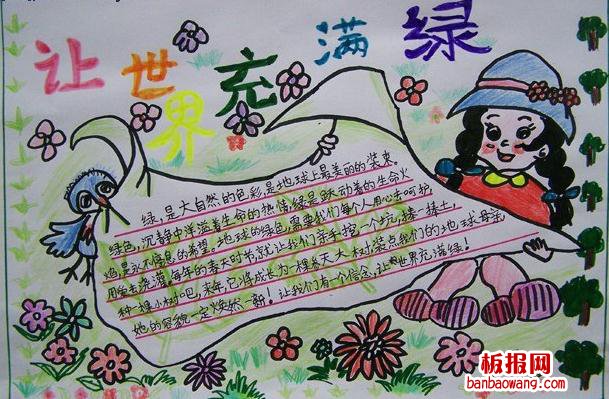 让世界充满绿
绿,是大自然的色彩,是地球上最美丽的装束。
绿色,沉静中洋溢着生命的热情,绿是跃动着的生命火
焰,是永不停息的希望。地球的绿色,需要我们每个人用心去呵护,
用爱去浇灌。每年的春天时节,就让我们亲手挖一个坑,捧一捧土,
种一棵小树吧,来年,它将成长为一棵参天大树,装点我们的地球母亲,
她的容貌一定焕然一新!让我们有一个信念,让世界充满绿!
板报网
banbaowang.com